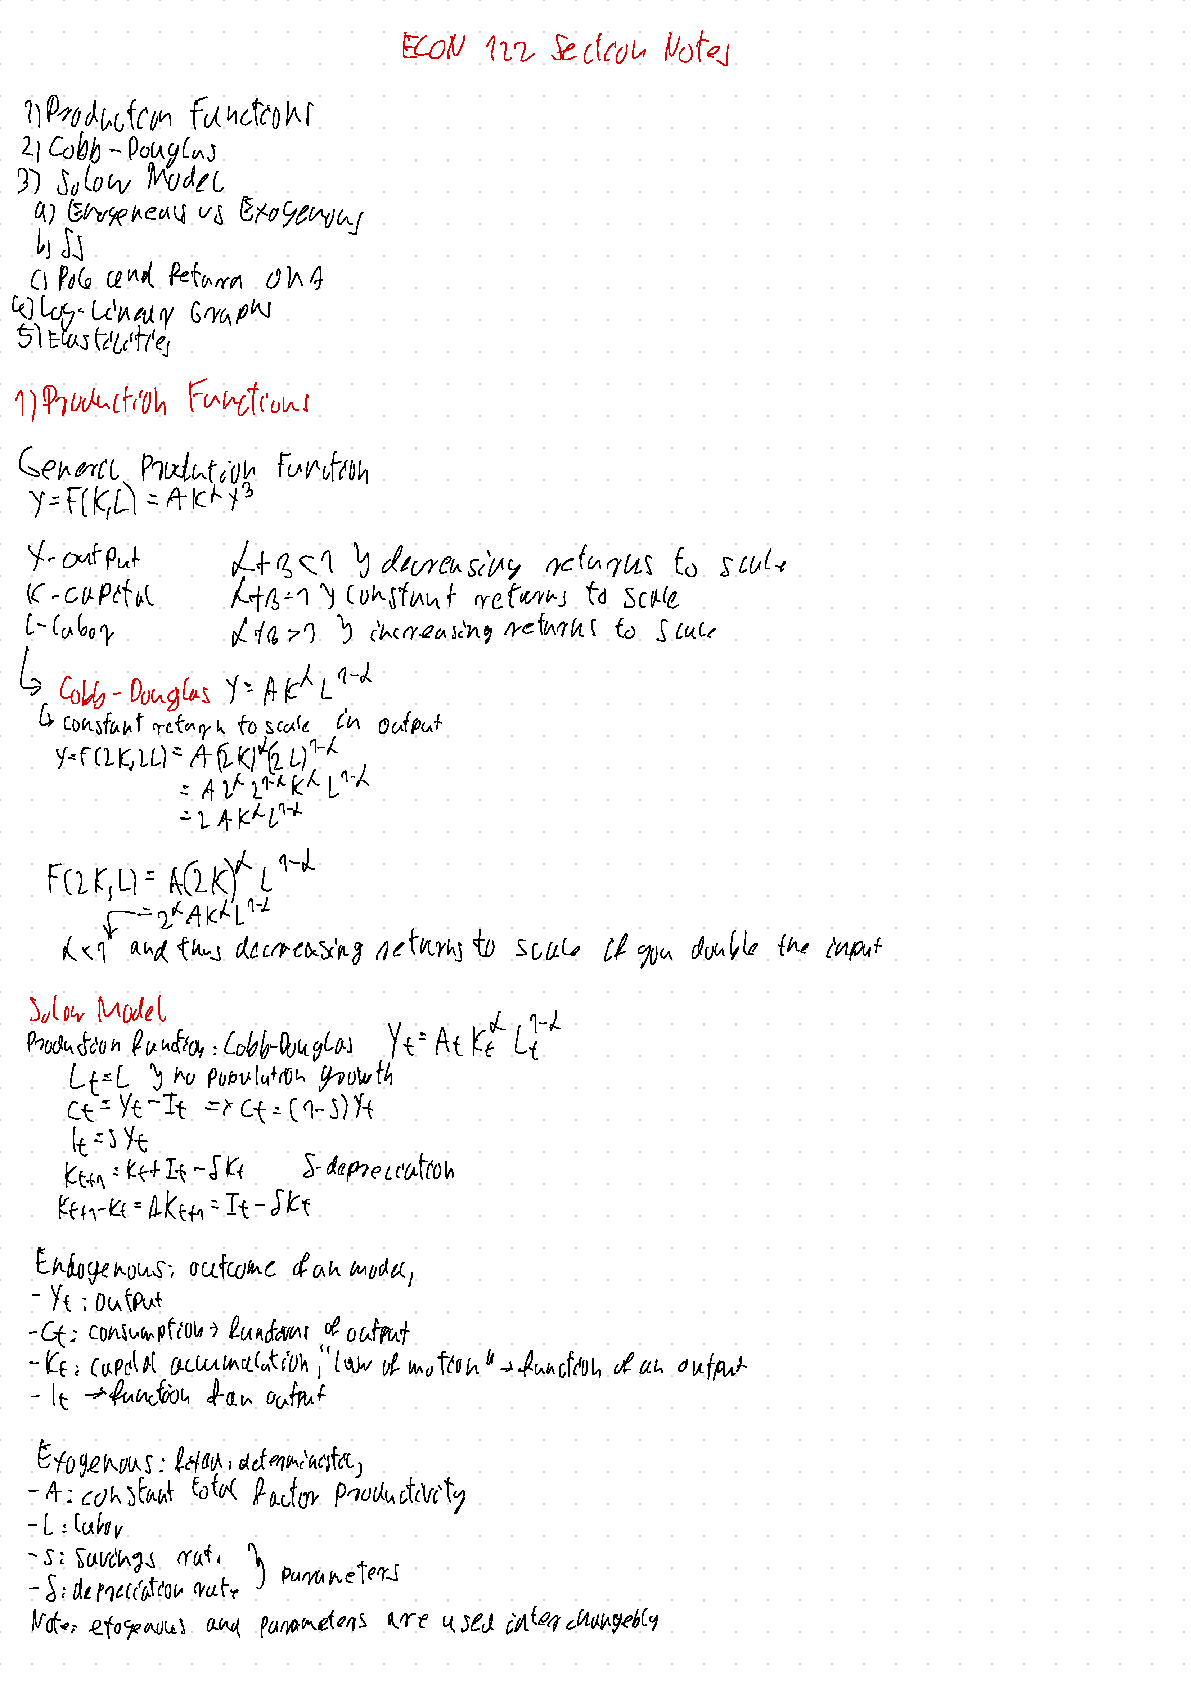 ECON 122 Section Notes
1) Production Functions
2) Cobb-Douglas
3) Solow Model
a) Endogeneous vs Exogenous
b) SS
c) PoG and Return on A
4) Log-Linear Graphs
5) Elasticities
1) Production Functions
General Production Function
Y=F(K,L) = A K^α Y^β
Y-output α+β<1 } decreasing returns to scale
K-capital α+β=1 } constant returns to scale
L-labor α+β>1 } increasing returns to scale
↳ Cobb-Douglas Y = A K^α L^1-α
↳ constant return to scale in output
Y=F(2K,2L) = A(2K)^α(2L)^1-α
= A 2^α 2^1-α K^α L^1-α
= 2 A K^α L^1-α
F(2K,L) = A(2K)^α L^1-α
= 2^α A K^α L^1-α
α<1 and thus decreasing returns to scale if you double the input
Solow Model
Production function: Cobb-Douglas Y_t = A_t K_t^α L_t^1-α
L_t = L } no population growth
C_t = Y_t - I_t => C_t = (1-s) Y_t
I_t = s Y_t
K_t+1 = K_t + I_t - δK_t δ-depreciation
K_t+1 - K_t = ΔK_t+1 = I_t - δK_t
Endogenous: outcome of an model,
- Y_t: output
- C_t: consumption → functions of output
- K_t: capital accumulation, "law of motion" → function of an output
- I_t → function of an output
Exogenous: deterministic,
- A: constant total factor productivity
- L: labor
- s: savings rate } parameters
- δ: depreciation rate
Note: exogenous and parameters are used interchangebly